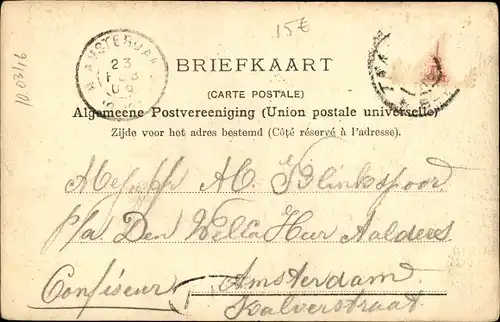 15 €
10.03/16
AMSTERDAM
23
FEB
BRIEFKAART
(CARTE POSTALE)
Algemeene Postvereeniging (Union postale universelle)
Zijde voor het adres bestemd (Côté réservé à l'adresse).
M. Blinkspoor
p/a Den WelEd Heer Aalders
Confiseur Amsterdam
Kalverstraat